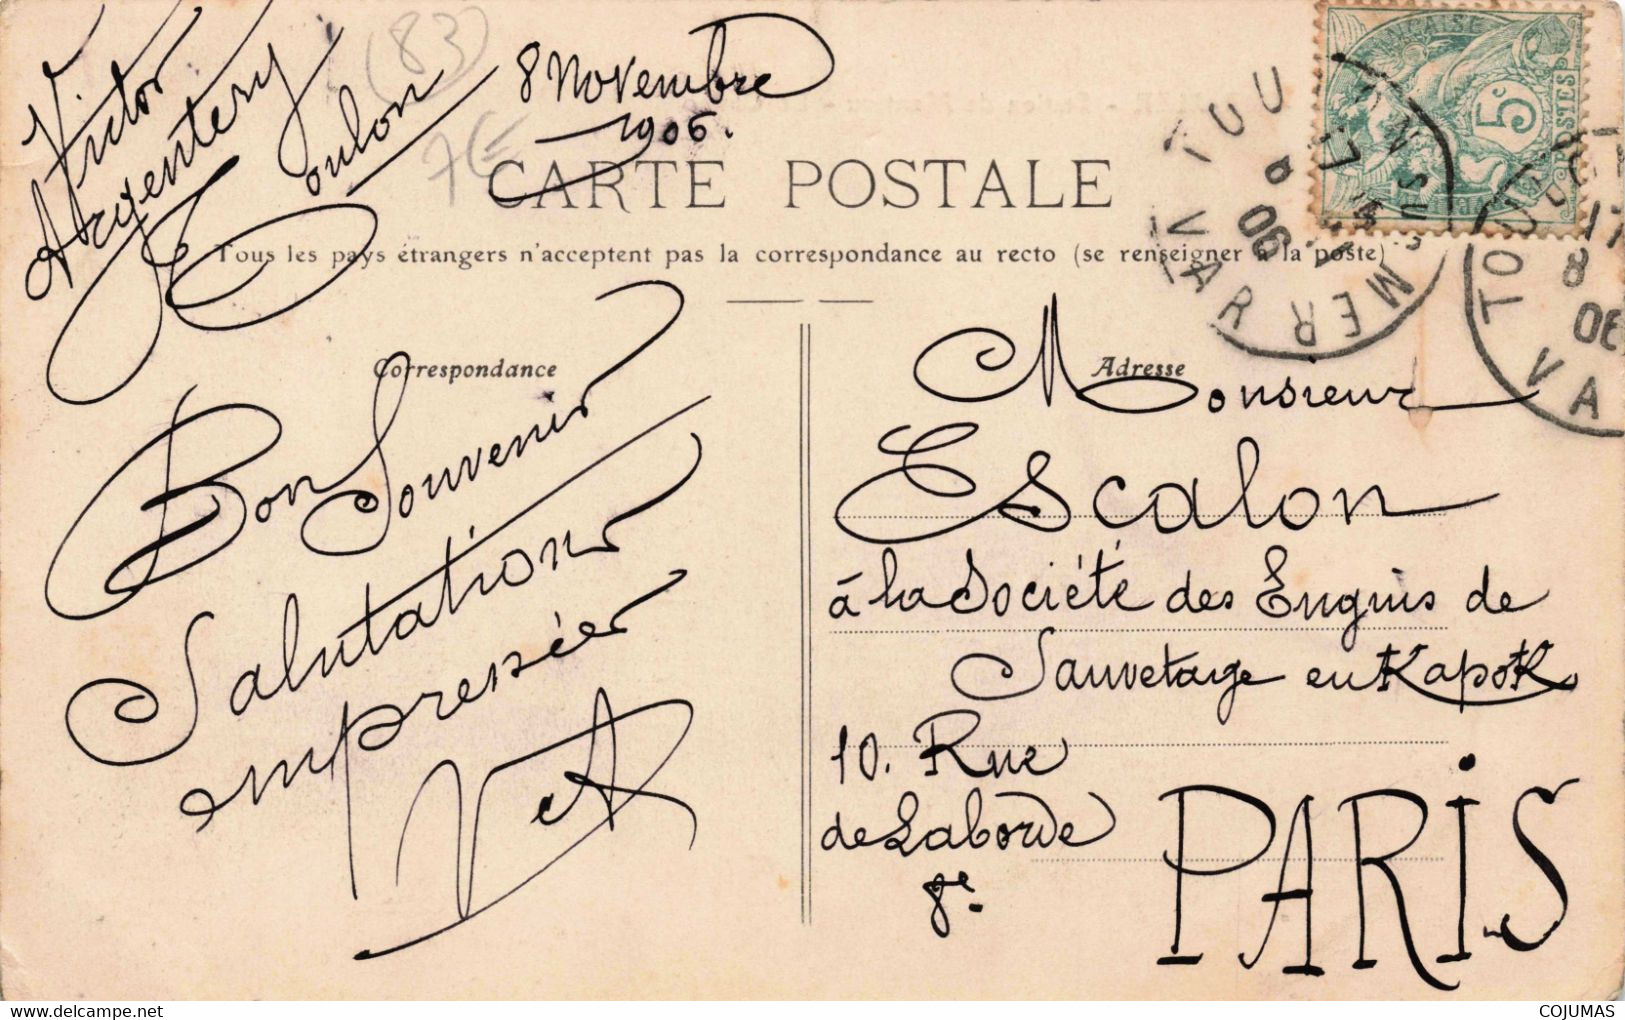 Victor
Argentery
Toulon
(83)
7€
8 Novembre
1906.
CARTE POSTALE
Tous les pays étrangers n'acceptent pas la correspondance au recto (se renseigner à la poste)
Correspondance
Bon Souvenir
Salutations
empressées
Adresse
Monsieur
Escalon
à la Société des Engins de
Sauvetage en Kapok
10. Rue
de Laborde
8e
PARIS
5c
POSTES
VAR
MER
06
TOU
17
8
06
VA
COJUMAS